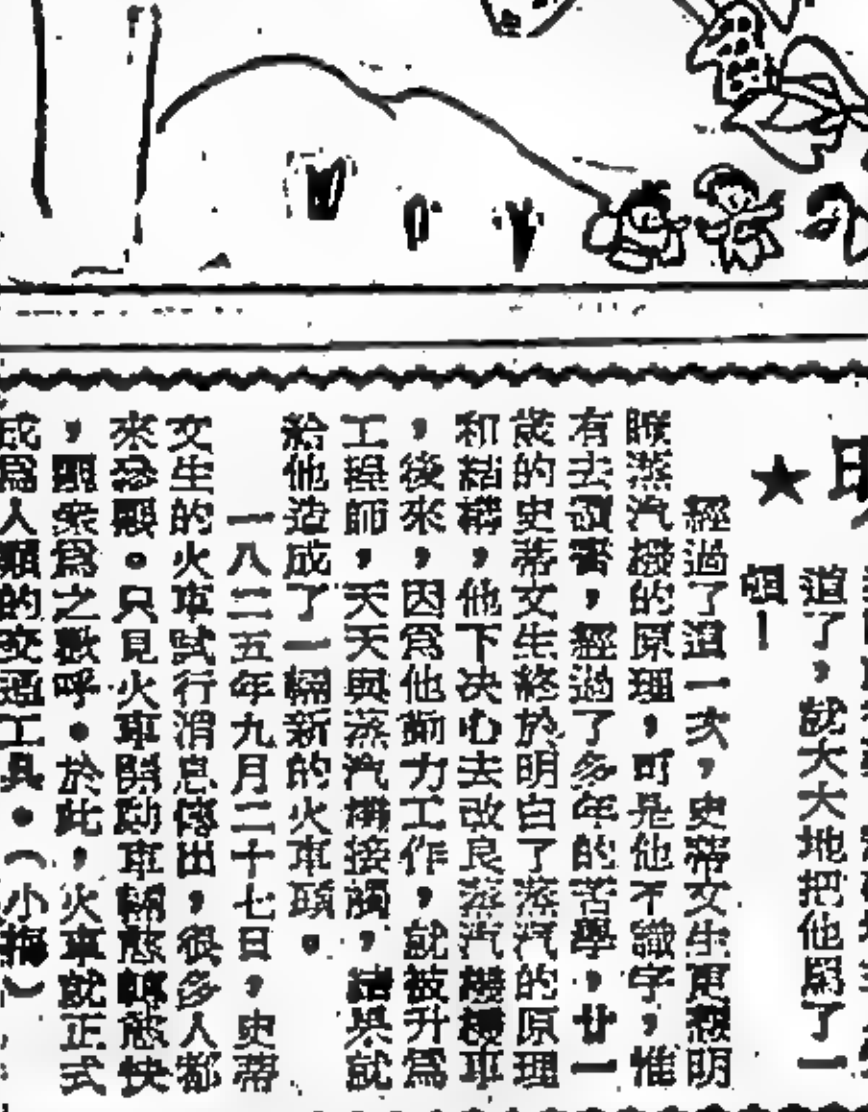 道了，就大大地把他罵了一
頓！
經過了這一次，史蒂文生更想明
瞭蒸汽機的原理，可是他不識字，惟
有去讀書，經過了多年的苦學，廿一
歲的史蒂文生終於明白了蒸汽的原理
和結構，他下决心去改良蒸汽機機車
，後來，因爲他努力工作，就被升爲
工程師，天天與蒸汽機接觸，結果就
給他造成了一輛新的火車頭。
一八二五年九月二十七日，史蒂
文生的火車試行消息傳出，很多人都
來參觀。只見火車開動車輛愈轉愈快
，觀衆爲之歡呼。於此，火車就正式
成爲人類的交通工具。（小梅）